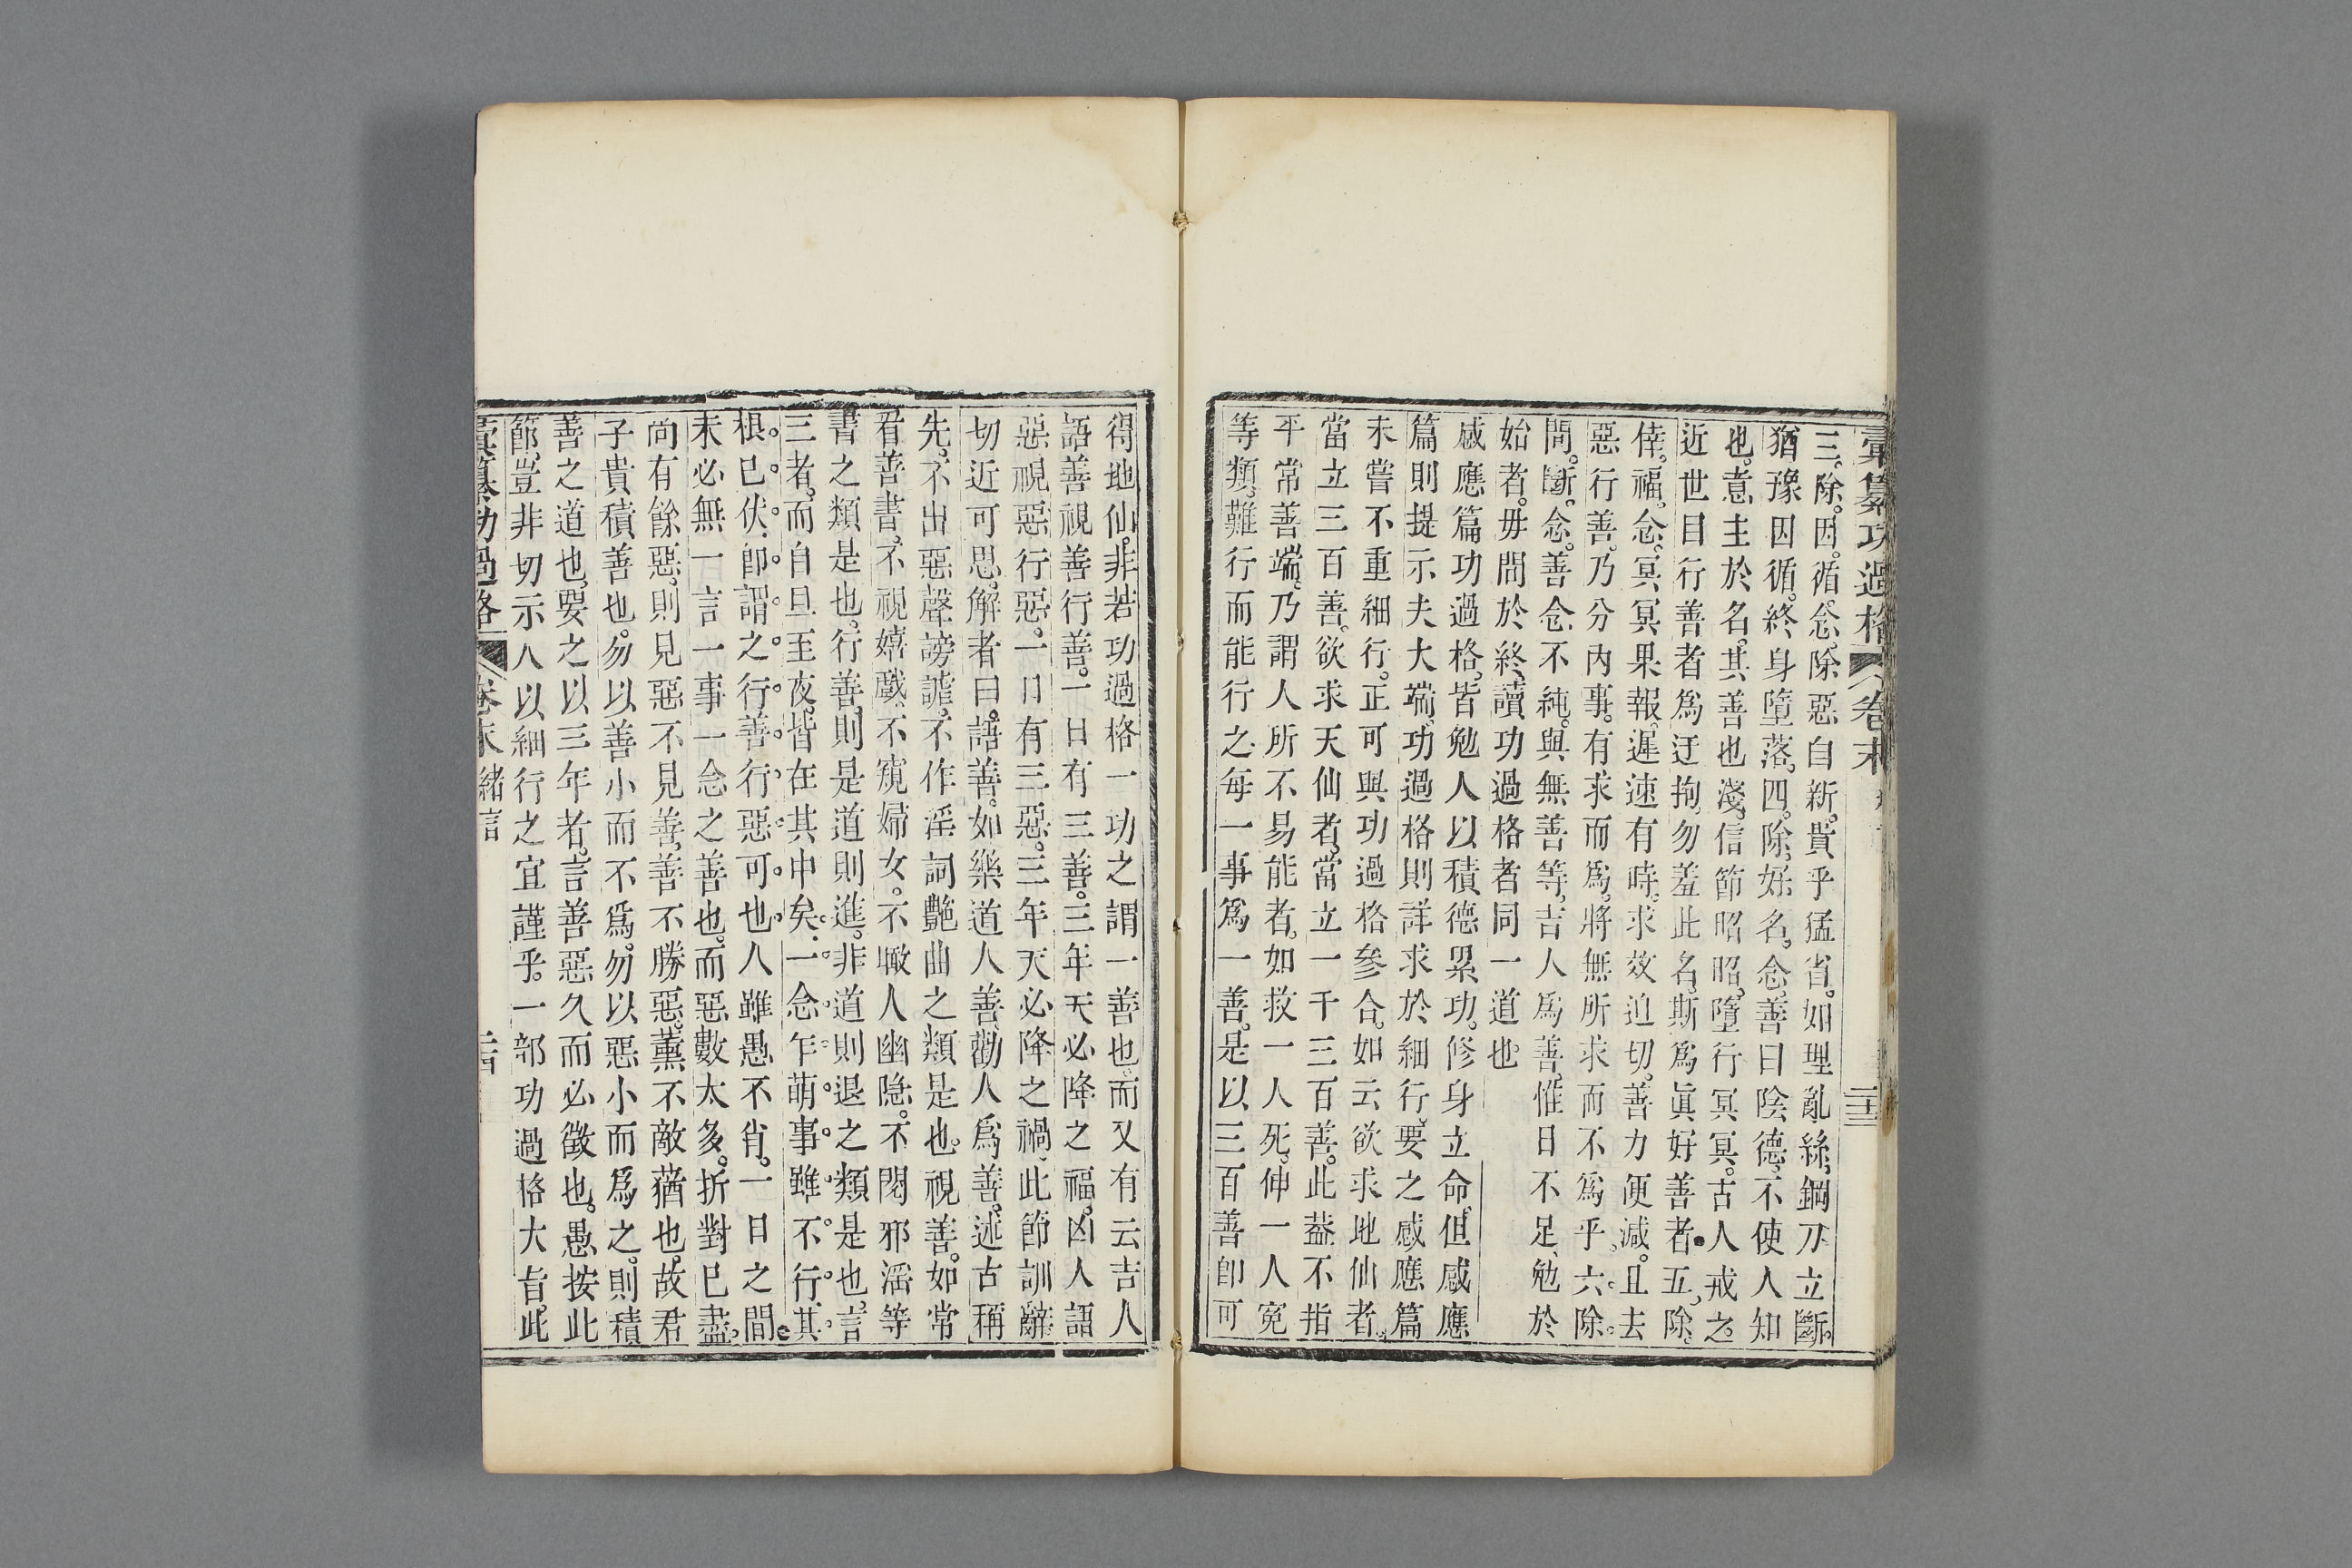 彙纂功過格　卷末　二十三
三。除。因。循。念。除惡自新。貴乎猛省。如理亂絲。鋼刀立斷。
猶豫因循。終身墮落。四。除。好。名。念。善曰陰德。不使人知
也。意主於名。其善也淺。信節昭昭。墮行冥冥。古人戒之。
近世目行善者爲迂拘。勿羞此名。斯爲眞好善者。五。除。
倖。福。念。冥冥果報。遲速有時。求效迫切。善力便減。且去
惡行善。乃分內事。有求而爲。將無所求而不爲乎。六。除。
間。斷。念。善念不純。與無善等。吉人爲善。惟日不足。勉於
始者。毋問於終。讀功過格者同一道也
感應篇功過格。皆勉人以積德累功。修身立命。但感應
篇則提示夫大端。功過格則詳求於細行。要之感應篇
未嘗不重細行。正可與功過格參合。如云欲求地仙者。
當立三百善。欲求天仙者。當立一千三百善。此葢不指
平常善端。乃謂人所不易能者。如救一人死。伸一人寃
等類。難行而能行之。每一事爲一善。是以三百善卽可
得地仙。非若功過格一功之謂一善也。而又有云吉人
語善視善行善。一日有三善。三年天必降之福。凶人語
惡視惡行惡。一日有三惡。三年天必降之禍。此節訓辭
切近可思。解者曰。語善。如樂道人善。勸人爲善。述古稱
先。不出惡聲謗譃。不作淫詞艷曲之類是也。視善。如常
看善書。不視嬉戲。不窺婦女。不瞰人幽隐。不閱邪滛等
書之類是也。行善。則是道則進。非道則退之類是也。言
三者。而自旦至夜。皆在其中矣。一念乍萌。事雖不行。其
根已伏。卽謂之行善行惡可也。人雖愚不肖。一日之間
未必無一言一事一念之善也。而惡數太多。折對已盡。
尚有餘惡。則見惡不見善。善不勝惡。薰不敵蕕也。故君
子貴積善也。勿以善小而不爲。勿以惡小而爲之。則積
善之道也。要之以三年者。言善惡久而必徵也。愚按此
節。豈非切示人以細行之宜謹乎。一部功過格大旨。此
彙纂功過格　卷末　緒言